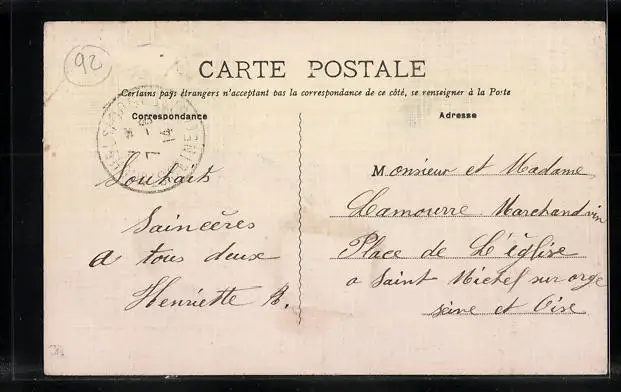 92
CARTE POSTALE
Certains pays étrangers n'acceptant pas la correspondance de ce côté, se renseigner à la Poste
Correspondance
Adresse
7 - 8
14
Souhaits
Saincères
a tous deux
Henriette B.
Monsieur et Madame
Lamourre Marchand vin
Place de L'église
a Saint Michel sur orge
seine et Oise